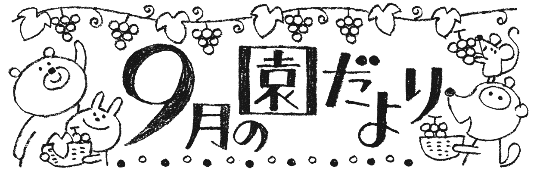 9月の園だより